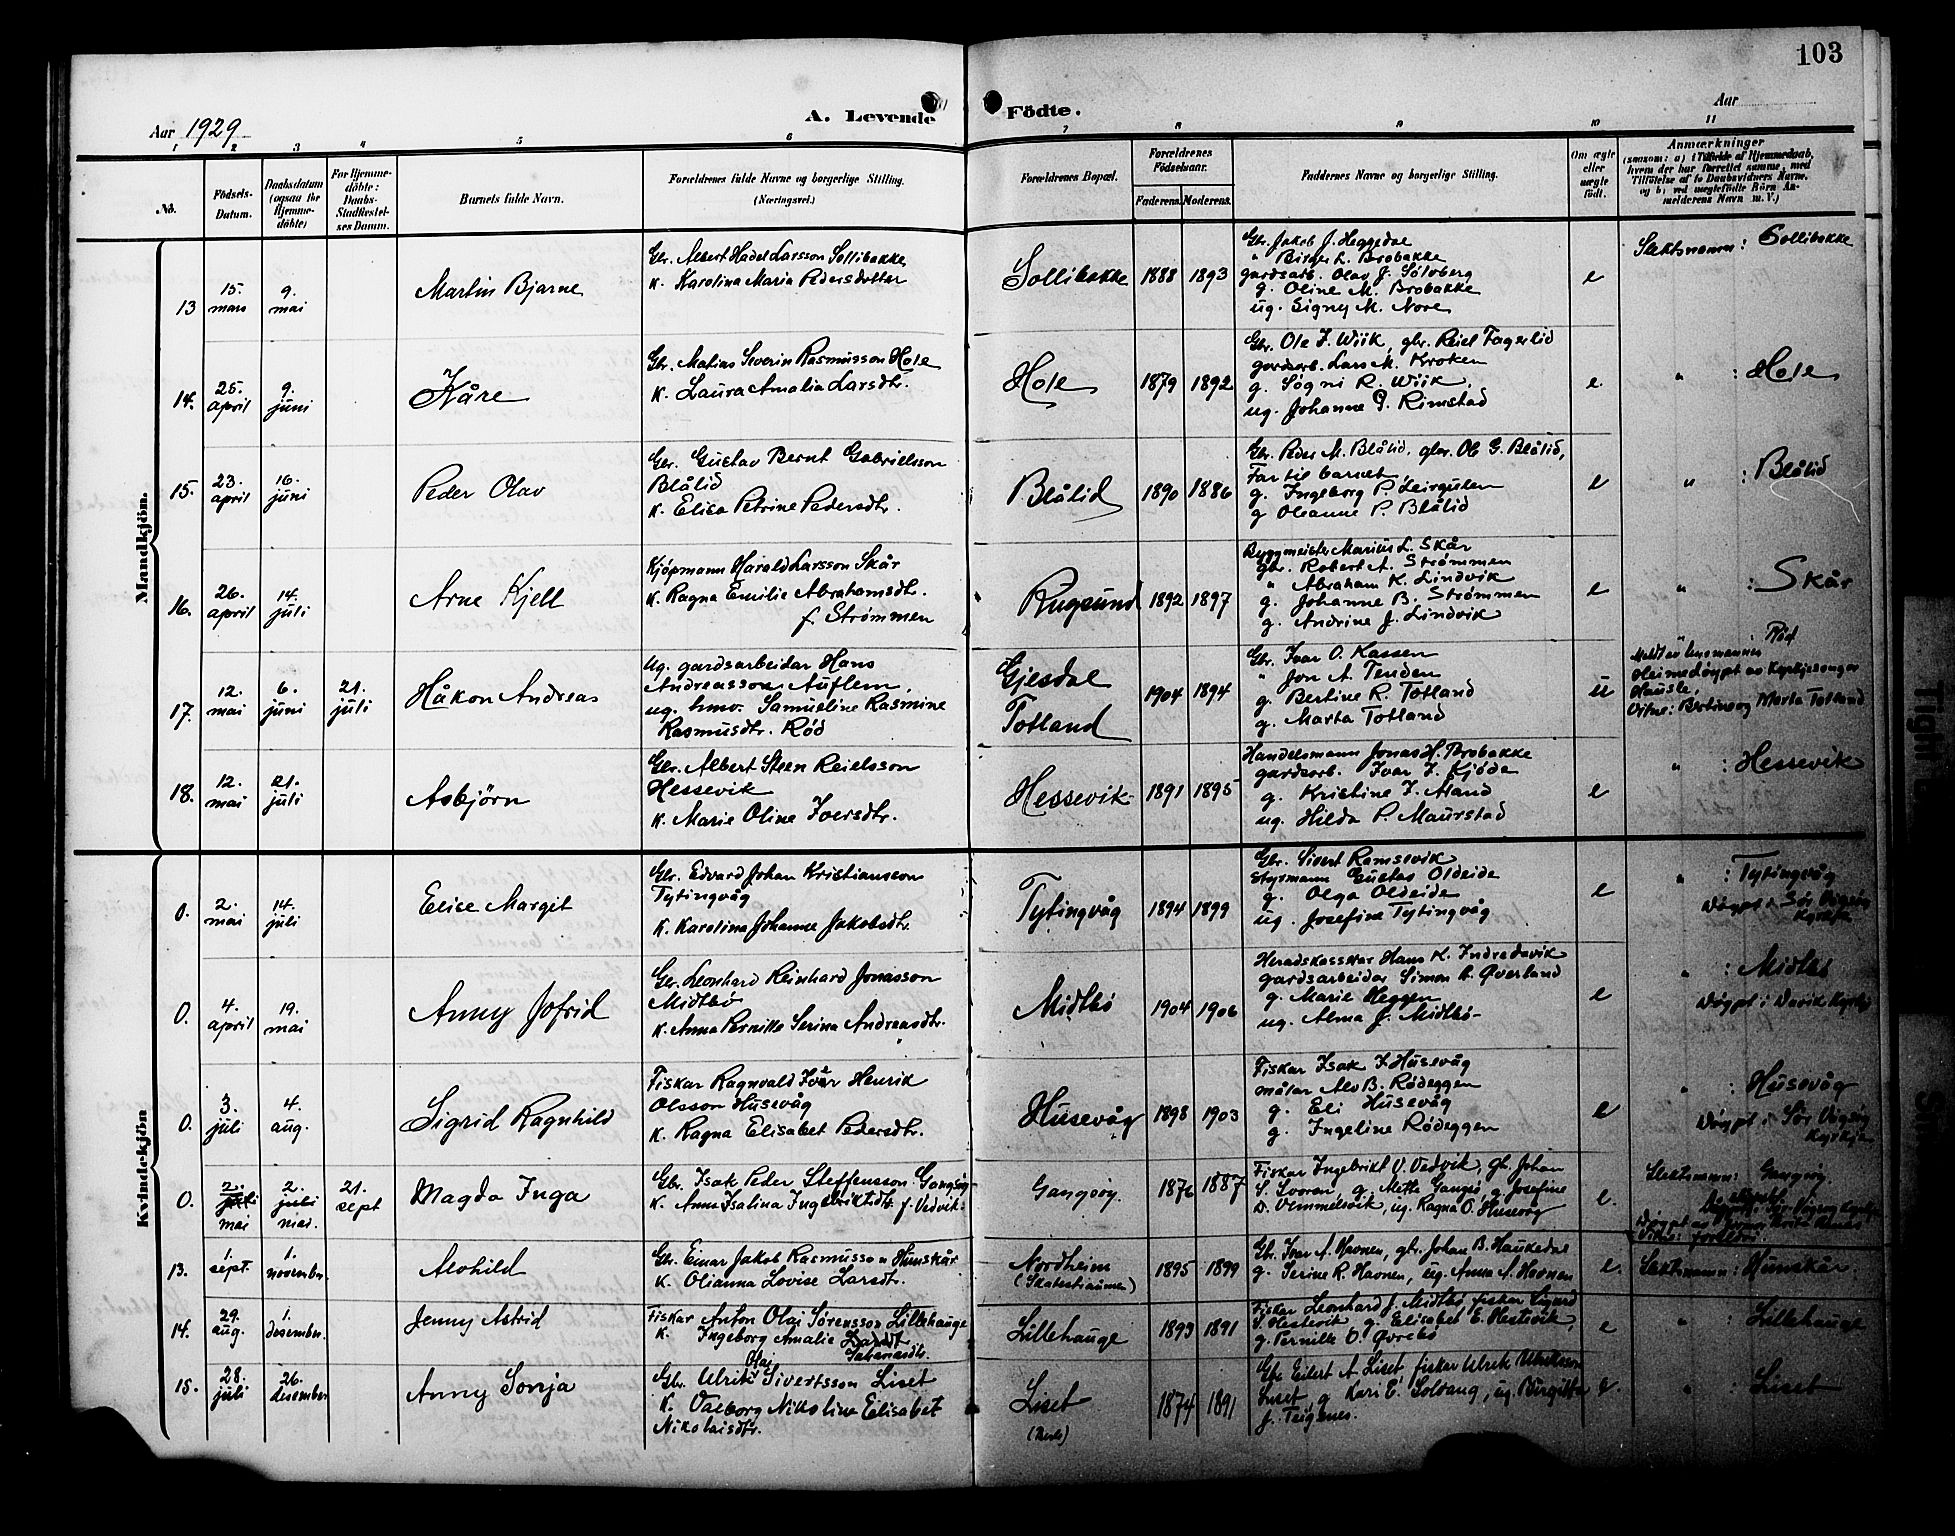 103
Aar 1929
A. Levende Födte.
Aar
1 2 3 4 5 6 7 8 9 10 11
No.
Födsels-Datum.
Daabsdatum (ogsaa for Hjemme-döbte)
For Hjemme-döbte: Daabs-Stadfæstel-ses Datum.
Barnets fulde Navn.
Forældrenes fulde Navne og borgerlige Stilling. (Næringsvei.)
Forældrenes Bopæl.
Forældrenes Födselsaar.
Faderens. Moderens.
Faddernes Navne og borgerlige Stilling.
Om ægte eller uægte födt.
Anmærkninger
(saasom: a) i Tilfælde af Hjemmedaab,
hvem der har forrettet samme, med
Tilföielse af to Daabsvidners Navne,
og b) ved uægtefödte Börn An-
melderens Navn m. V.)
Mandkjön.
13 15. mars 9. mai
Martin Bjarne
Gbr. Albert Hadel Larsson Sollibakke
K. Karolina Maria Pedersdotter
Sollibakke 1888 1893
Gbr. Jakob J. Heggedal
" Birger L. Brobakke
gardsarb. Olav J. Sølvberg
g. Oline M. Brobakke
ug. Signy M. Nore
e
Slektsnamn: Sollibakke
14. 25. april 9. juni
Kåre
Gbr. Matias Severin Rasmusson Hole
K. Laura Amalia Larsdtr.
Hole 1879 1892
Gbr. Ole J. Wiik, gbr. Reiel Fagerlid
gardsarb. Lars M. Kroken
g. Søgni R. Wiik,
ug. Johanne J. Rimstad
e
" : Hole
15. 23. april 16. juni
Peder Olav
Gbr. Gustav Bernt Gabrielsson
Blålid
K. Elisa Petrine Pedersdtr.
Blålid 1890 1886
Gbr. Peder M. Blålid, gbr. Ole G. Blålid,
Far til barnet
g. Ingeborg P. Leirgulen
g. Oleanne P. Blålid
e
" : Blålid
16. 26. april 14. juli
Arne Kjell
Kjøpmann Harald Larsson Skår
K. Ragna Emilie Abrahamsdt.
f. Strømmen
Rugsund 1892 1897
Byggmeister Marius L. Skår
gbr. Robert A. Strømmen
" Abraham K. Lindvik
g. Johanne B. Strømmen
g. Andrine J. Lindvik
e
" : Skår
17. 12. mai 6. juni 21. juli
Håkon Andreas
Ug. gardsarbeidar Hans
Andreasson Auflem,
ug. hmv. Samueline Rasmine
Rasmusdtr. Rød
Gjesdal
Totland
1904 1894
Gbr. Ivar O. Kassen
" Jon A. Tenden
g. Bertine R. Totland
g. Marta Totland
u
Rød
Heimedøypt av Kyrkjesongar
Hausle,
Vitne: Bertine og Marta Totland
18. 12. mai 21. juli
Asbjörn
Gbr. Albert Steen Reielsson
Hessevik
K. Marie Oline Iversdtr.
Hessevik 1891 1895
Handelsmann Jonas H. Brobakke
gardsarb. Ivar J. Kjøde
g. Kristine J. Aland
ug. Hilda P. Maurstad
e
" : Hessevik
Kvindekjön
0. 2. mai 14. juli
Elise Margit
Gbr. Edvard Johan Kristiansson
Tytingvåg
K. Karolina Johanne Jakobsdtr.
Tytingvåg 1894 1899
Gbr. Sivert Ramsevik
Styrmann Gustav Oldeide
g. Olga Oldeide
ug. Josefine Tytingvåg
e
" : Tytingvåg
Døypt i Sør Vågsøy
Kyrkje
0. 4. april 19. mai
Anny Jofrid
Gbr. Leonhard Reinhard Jonasson
Midtbø
K. Anna Pernille Serina Andreasdtr.
Midtbø 1904 1906
Heradskasserar Hans K. Indredavik
gardsarbeidar Simon A. Øverland
g. Marie Heggen
ug. Alma J. Midtbø
e
" : Midtbø
Døypt i Davik Kyrkje
0. 3. juli 4. aug.
Sigrid Ragnhild
Fiskar Ragnvald Ivar Henrik
Olsson Husevåg
K. Ragna Elisabet Pedersdtr.
Husevåg 1898 1903
Fiskar Isak J. Husevåg
målar Alv B. Rødeggen
g. Eli Husevåg
g. Ingeline Rødeggen
e
" : Husevåg
Døypt i Sør Vågsøy
Kyrkje
0. 2. juli mai 2. juli mai. 21. sept
Magda Inga
Gbr. Isak Peder Steffensson Gangsøy
K. Anna Isalina Ingebriktsdtr. f. Vedvik
Gangsøy. 1876 1887
Fiskar Ingebrikt V. Vedvik, gb. Johan
S. Svoren, g. Mette Gangsø, g. Josefine
D. Vemmelsvik, ug. Ragna O. Husevåg
e.
Slektsnamn: Gangsøy.
13. 1. sept. 1. november.
Alvhild
Gbr. Einar Jakob Rasmusson Hunskår
K. Olianna Lovise Larsdtr.
Nordheim
(Skatestraumen)
1895 1899
Gbr. Ivar A. Havnen, gbr. Johan B. Haukedal
g. Serine R. Havnen, ug. Anna A. Havnen
e.
Slektsnamn: Hunskår.
14. 29. aug. 1. desember.
Jenny Astrid
Fiskar Anton Olai Sørensson Lillehauge
K. Ingeborg Amalie
Lillehauge 1899 1891
Fiskar Leonhard J. Midtbø, fiskar Sigurd
S. Hestevik g. Elisabet E. Hestevik,
g. Pernille D. Øvrebø
e
" : Lillehauge
15. 28. juli 26. desember
Anny Sonja
Gbr. Ulrik Olai Sivertsson Liset
K. Valborg Nikoline Elisabet
Nikolaisdtr.
Liset 1874 1891
Gbr. Eilert A. Liset, fiskar Ulrik Ulriksson
Liset, g. Kari E. Solvang, ug. Birgitte
J. Teigenes.
e.
" : Liset